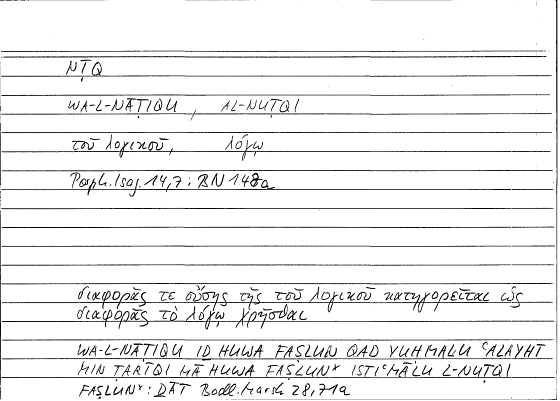 NṬQ
WA-L-NĀṬIQU , AL-NUṬQI
τοῦ λογικοῦ, λόγῳ
Porph. Isag. 14,7 ; BN 148a
διαφορᾶς τε οὔσης τῆς τοῦ λογικοῦ κατηγορεῖται ὡς
διαφορᾶς τὸ λόγῳ χρῆσθαι
WA-L-NĀṬIQU IḎ HUWA FAṢLUN QAD YUḤMALU ʿALAYHI
MIN ṬARĪQI MĀ HUWA FAṢLUN* ISTIʿMĀLU L-NUṬQI
FAṢLUN* : ḎĀT Bodl. Marsh 28,71a